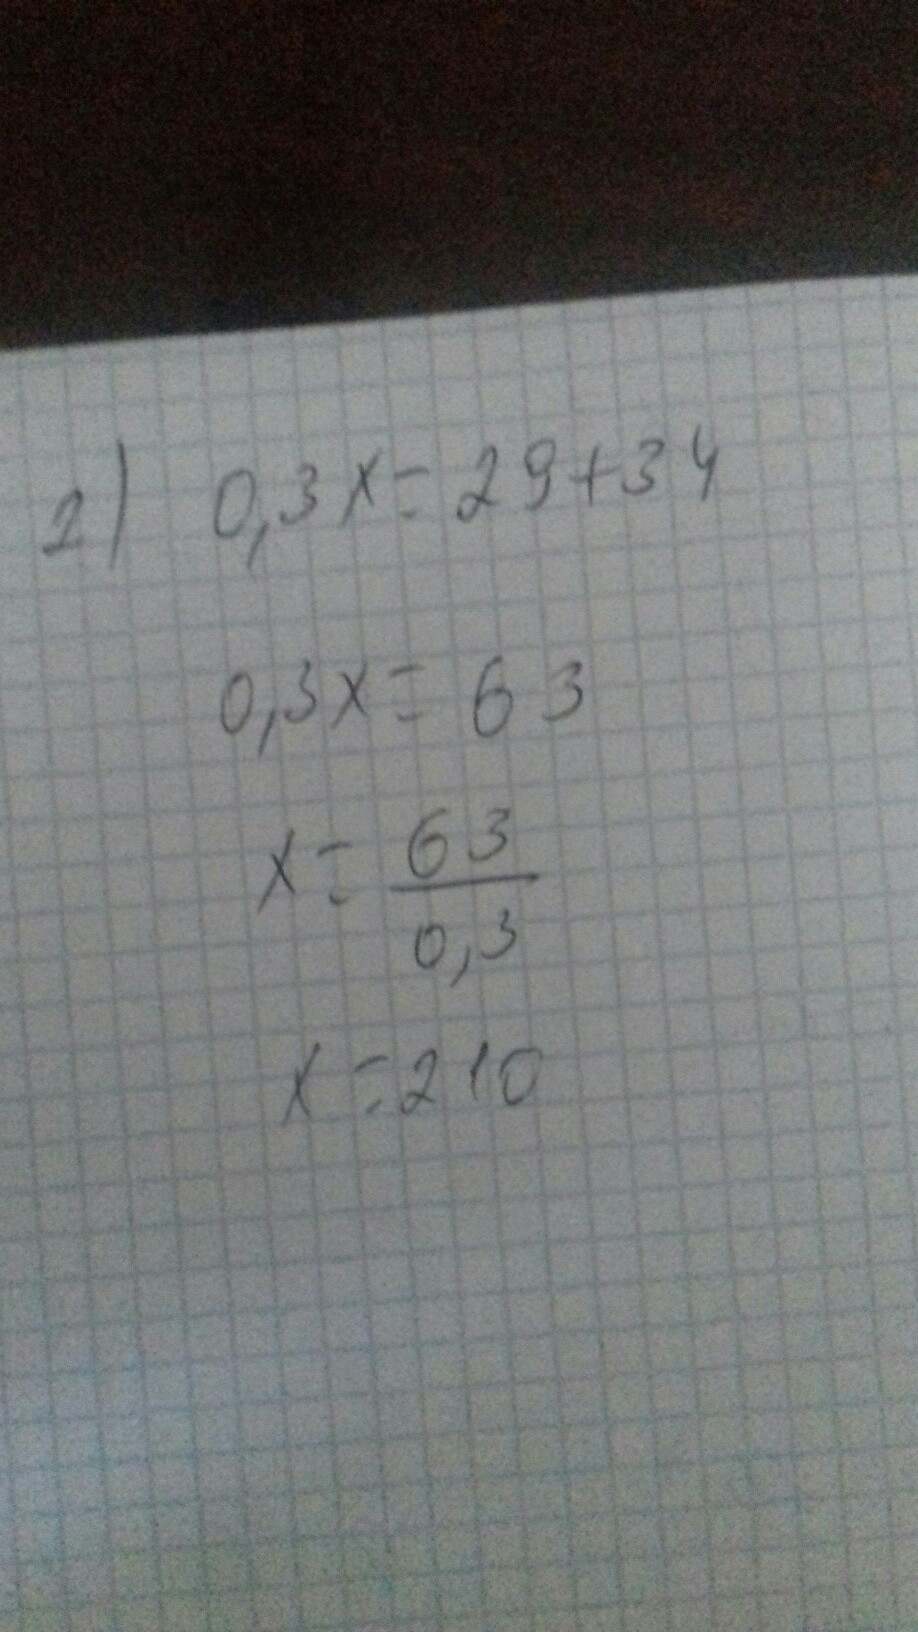 1) 0,3x = 29+34
0,3x = 63
x = 63/0,3
x = 210